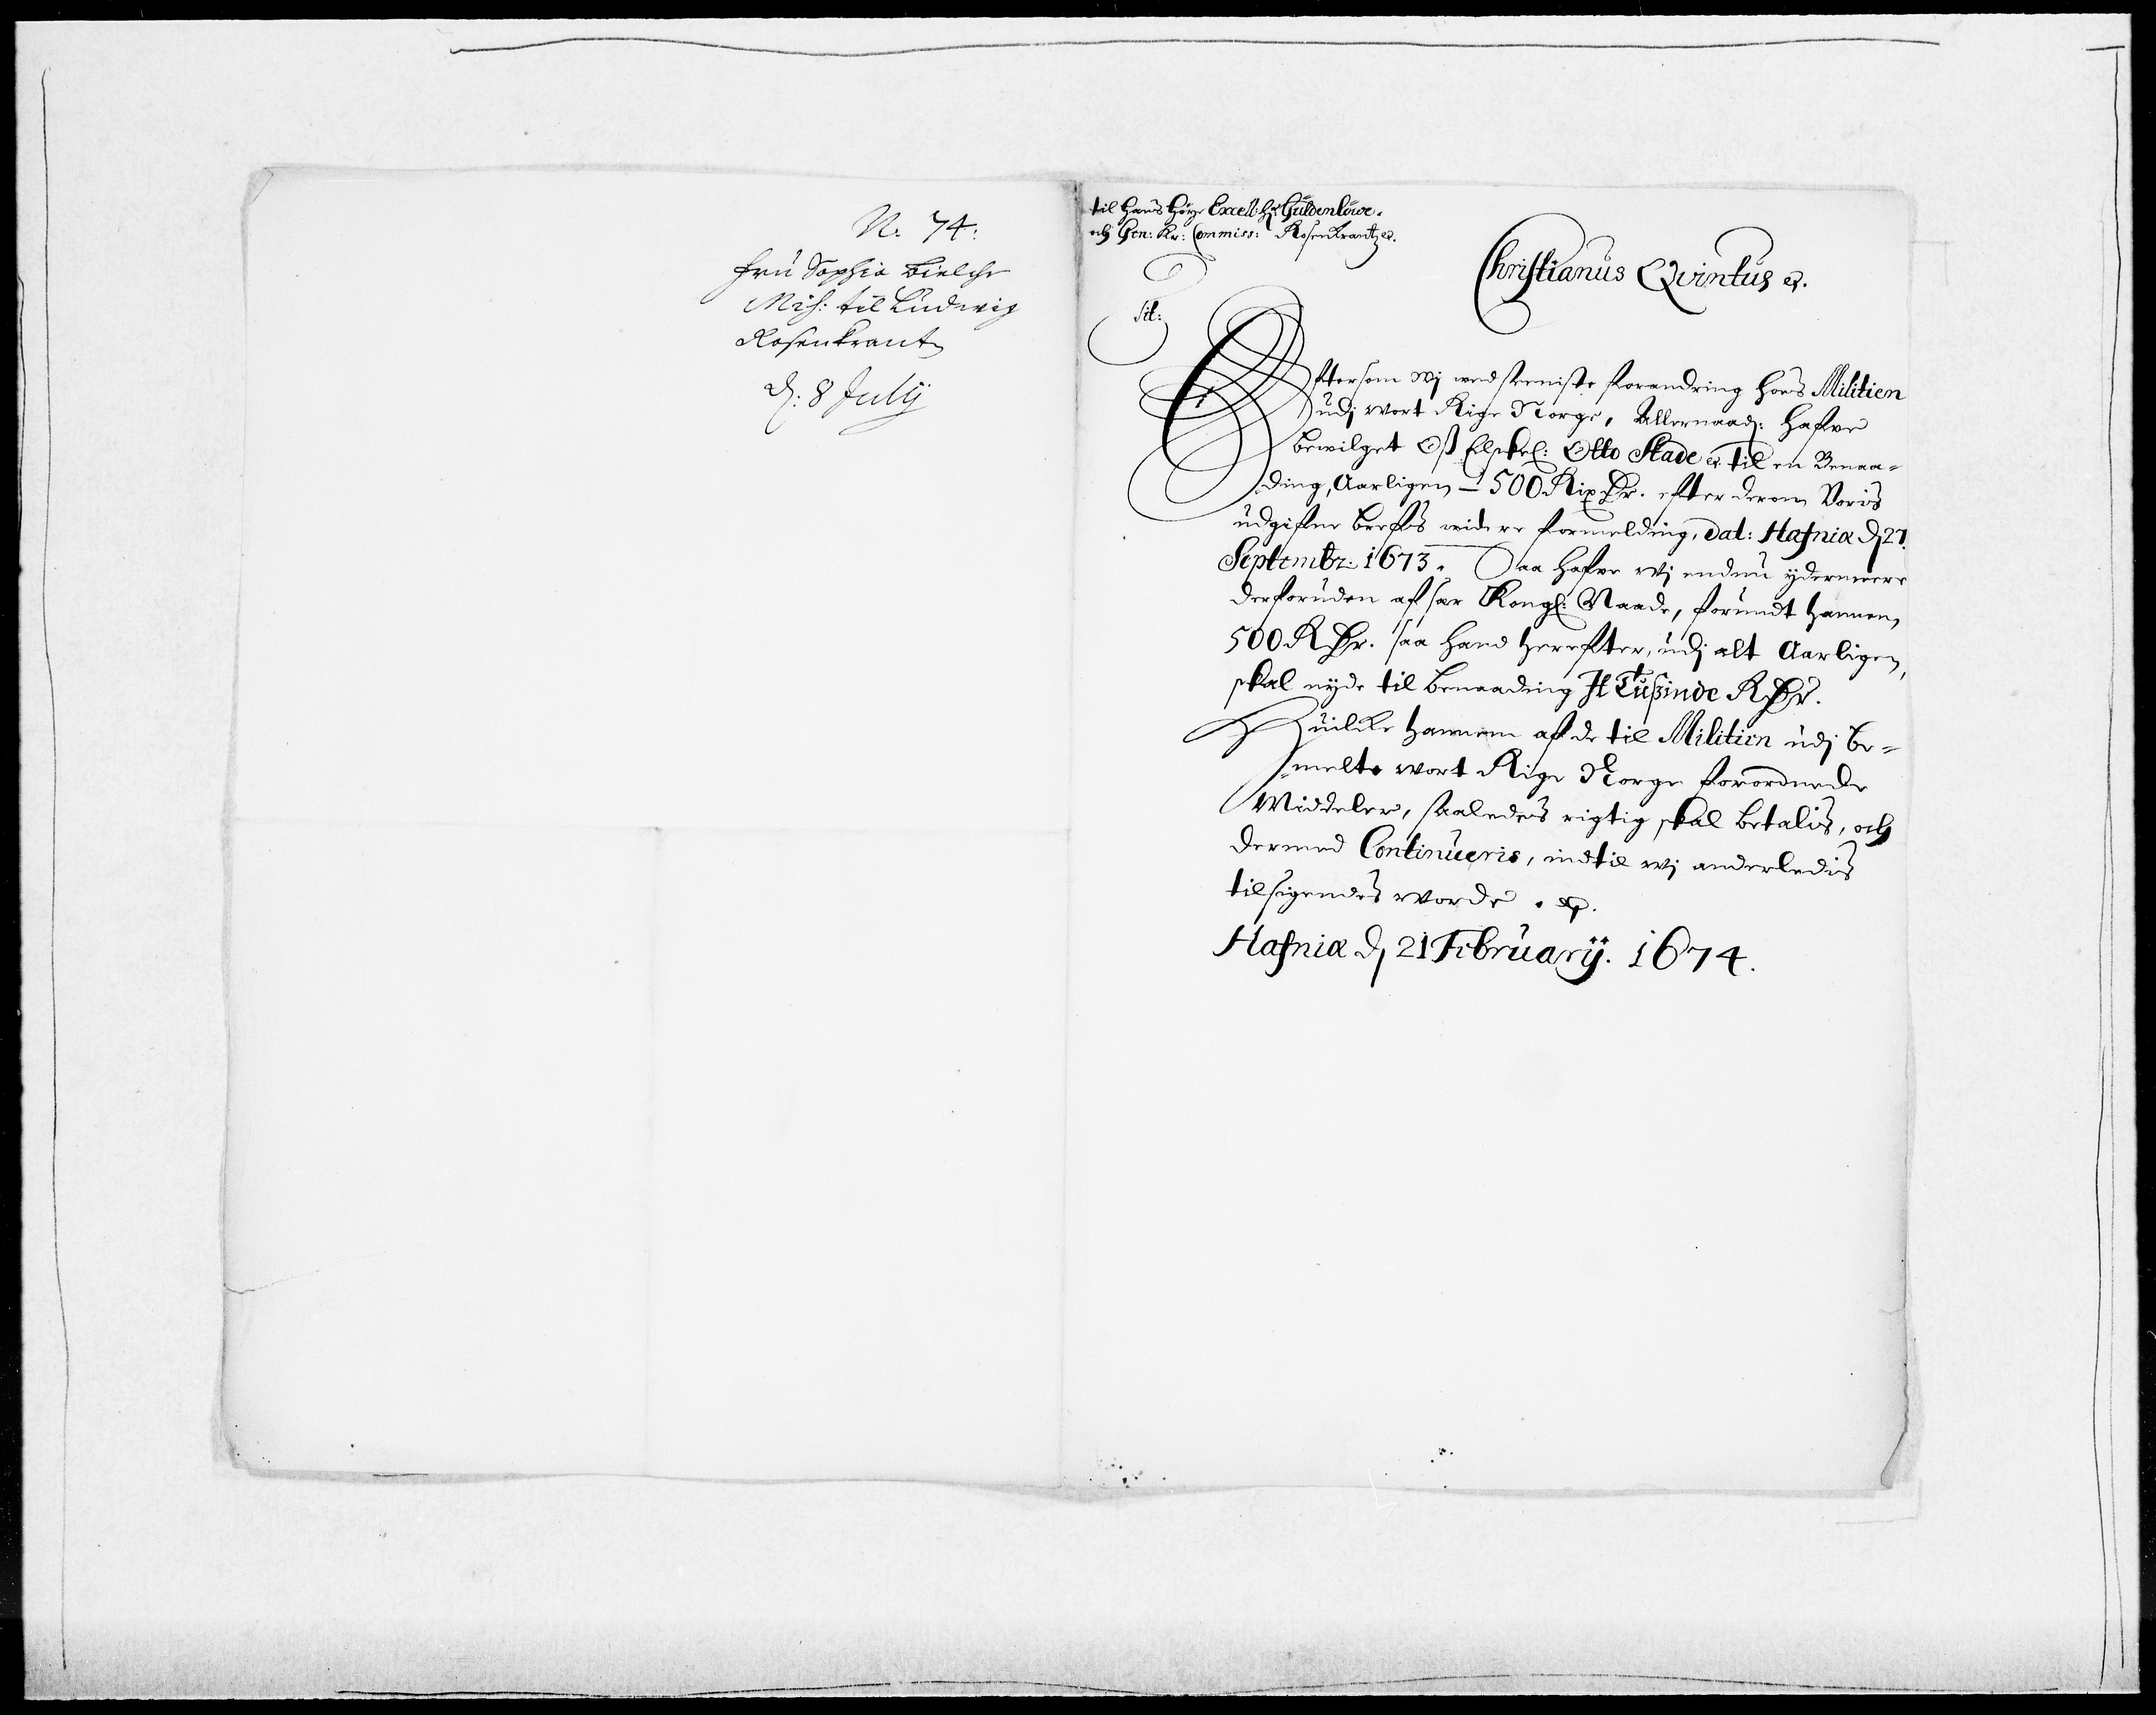 N. 74:
Fru Sophia Bielche
Mis: til Ludwig
Rosenkrantz
d: 8 July
til Hans Høye Excell: Hr: Güldenlöwe.
och Gen: Kr: Commiss: Rosenkrantz &.
Christianus Qvintus &.
Tit:
Eftersom Wj wed seeniste forandring hoes Militien
udj wort Rige Norge, Allernaad: hafve
bewilget Oß Elskel: Otto Stade &. til en Benaa-
ding, Aarligen - 500 Rix Dr. efter derom Voris
udgifne brefs widere formelding, Dat: Hafniæ d 27.
Septembr: 1673. Saa hafve Wj endnu ydermeere
derforuden af sær Kongl: Naade, forundt hannem,
500 R Dr. saa hand herefter, udj alt Aarligen,
skal nyde til benaading It Tußinde R Dr.
Huilke hannem af de til Militien udj be-
melte wort Rige Norge forordnede
Middeler, saaledes rigtig skal betalis, och
dermed Continueris, indtil wj anderledis
tilsigendes worde. &.
Hafniæ d 21 Februarÿ. 1674.